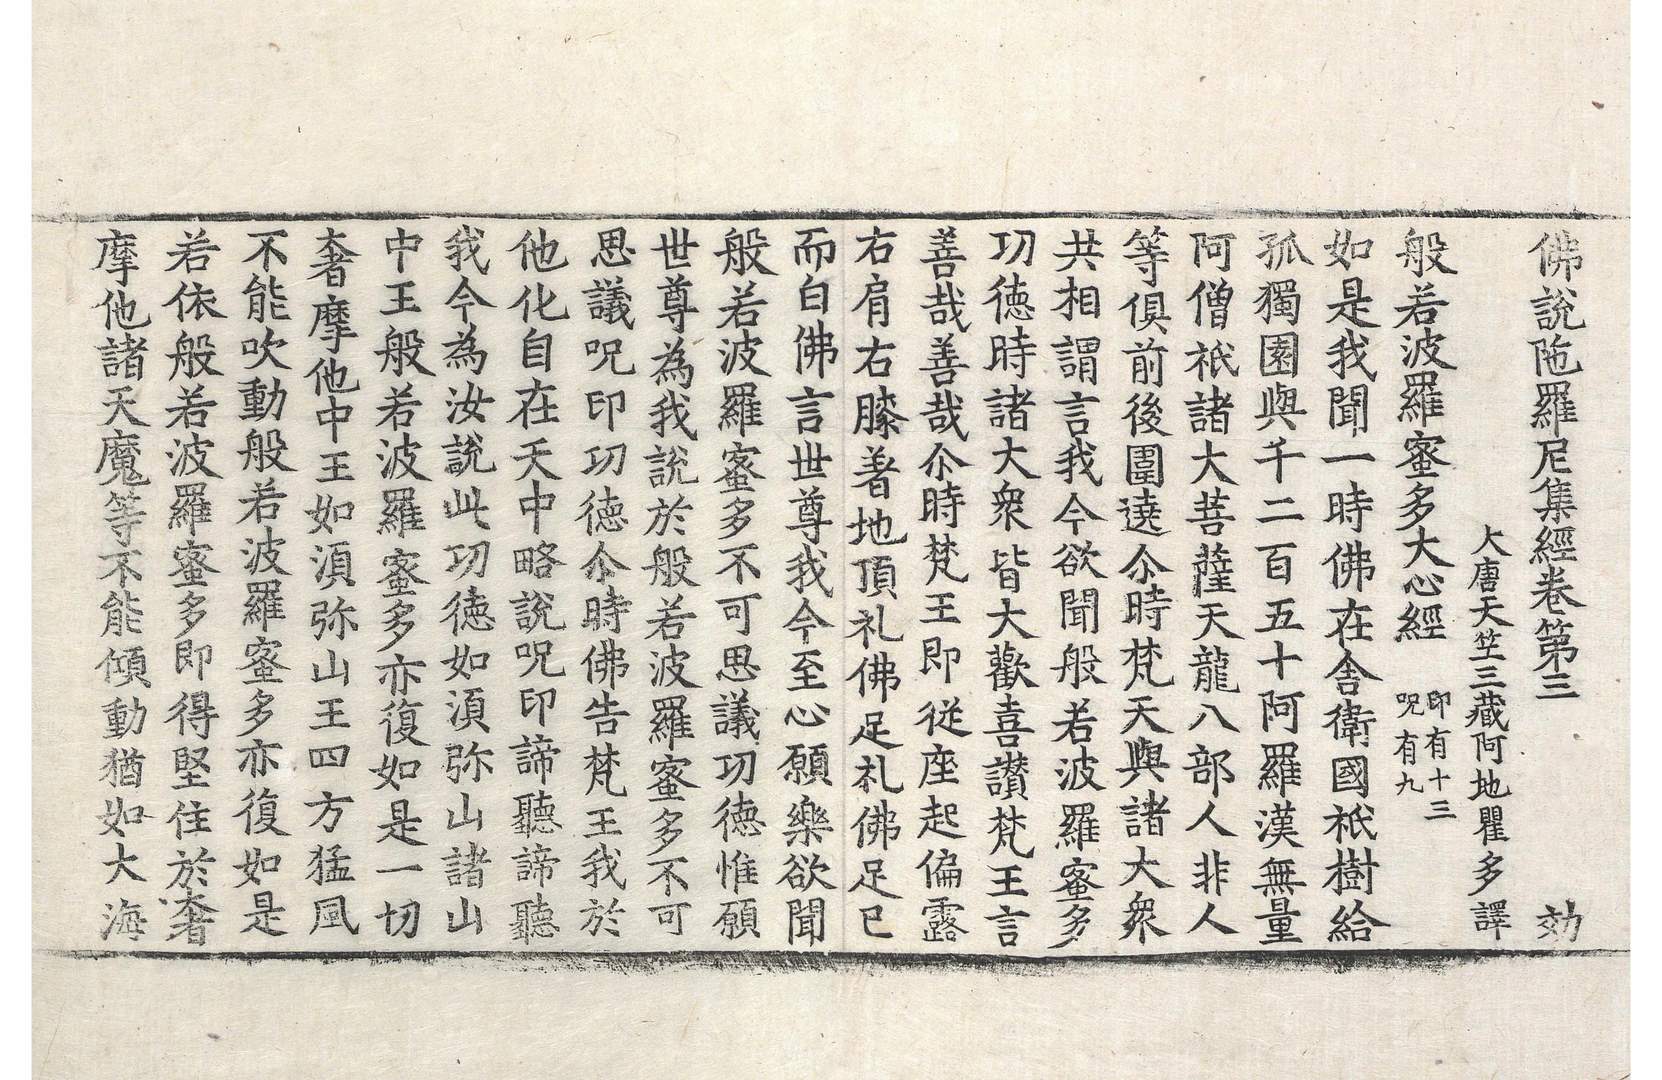 佛說陁羅尼集經卷第三 効
大唐天竺三藏阿地瞿多譯
般若波羅蜜多大心經 印有十三 呪有九
如是我聞一時佛在舍衛國祇樹給
孤獨園與千二百五十阿羅漢無量
阿僧祇諸大菩薩天龍八部人非人
等俱前後圍遶尒時梵天與諸大衆
共相謂言我今欲聞般若波羅蜜多
功德時諸大衆皆大歡喜讃梵王言
善哉善哉尒時梵王即従座起偏露
右肩右膝著地頂礼佛足礼佛足已
而白佛言世尊我今至心願樂欲聞
般若波羅蜜多不可思議功德惟願
世尊為我說於般若波羅蜜多不可
思議呪印功德尒時佛告梵王我於
他化自在天中略說呪印諦聽諦聽
我今為汝說此功德如湏弥山諸山
中王般若波羅蜜多亦復如是一切
奢摩他中王如湏弥山王四方猛風
不能吹動般若波羅蜜多亦復如是
若依般若波羅蜜多即得堅住於奢
摩他諸天魔等不能傾動猶如大海